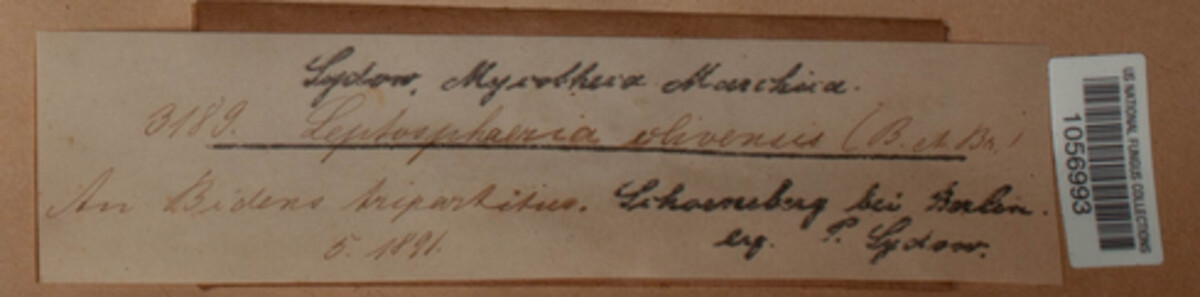 Sydow, Mycotheca Marchica.
3189. Leptosphaeria olivensis (B. et Br.)
An Bidens tripartitus. Schoeneberg bei Berlin.
5. 1891. leg. P. Sydow.
US NATIONAL FUNGUS COLLECTIONS
1056993